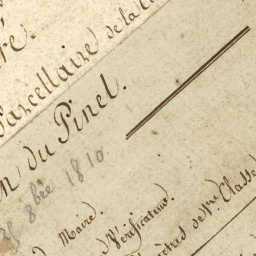 ré.
Parcellaire de la
du Pinel.
8bre 1810
Maire.
Vérificateur.
de 1re Classe